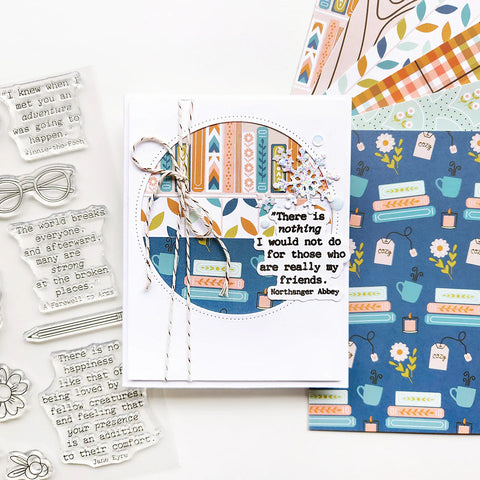 "I knew when I
met you an
adventure
was going to
happen.
Winnie-the-Pooh
The world breaks
everyone,
and afterward,
many are
strong
at the broken
places.
A Farewell to Arms
There is no
happiness
like that of
being loved by
fellow creatures,
and feeling that
your presence
is an addition
to their comfort.
Jane Eyre
"There is
nothing
I would not do
for those who
are really my
friends.
Northanger Abbey
cozy
cozy
cozy
cozy